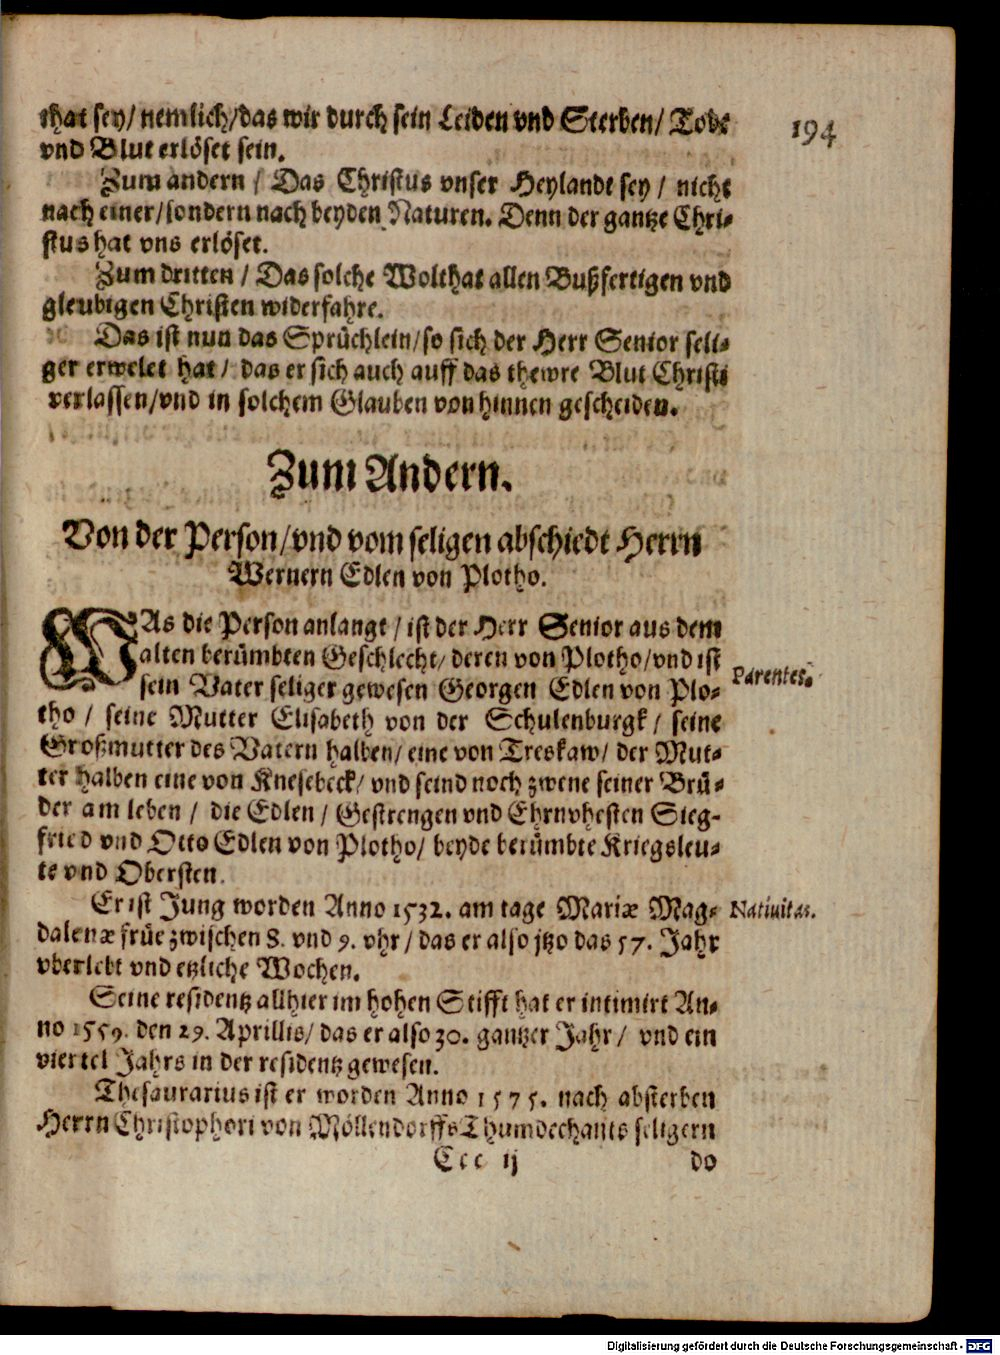 that sey/ nemlich/das wir durch sein Leiden vnd Sterben/ Tode
194
vnd Blut erlöset sein.
Zum andern / Das Christus vnser Heylandt sey / nicht
nach einer/sondern nach beyden Naturen. Denn der gantze Chri-
stus hat vns erlöset.
Zum dritten / Das solche Wolthat allen Bußfertigen vnd
gleubigen Christen widerfahre.
Das ist nun das Sprüchlein/so sich der Herr Senior seli-
ger erwelet hat / das er sich auch auff das thewre Blut Christi
verlassen/vnd in solchem Glauben von hinnen gescheiden.
Zum Andern.
Von der Person/vnd vom seligen abschiedt Herrn
Wernern Edlen von Plotho.
WAs die Person anlangt / ist der Herr Senior aus dem
alten berümbten Geschlecht/ deren von Plotho/vnd ist
Parentes.
sein Vater seliger gewesen Georgen Edlen von Plo-
tho / seine Mutter Elisabeth von der Schulenburgk / seine
Großmutter des Vatern halben/ eine von Treskaw/ der Mut-
ter halben eine von Knesebeck/ vnd seind noch zwene seiner Brü-
der am leben / die Edlen / Gestrengen vnd Ehrnvhesten Sieg-
fried vnd Otto Edlen von Plotho/ beyde berümbte Kriegsleu-
te vnd Obersten.
Er ist Jung worden Anno 1532. am tage Mariæ Mag-
Natiuitas.
dalenæ früe zwischen 8. vnd 9. vhr / das er also jtzo das 57. Jahr
vberlebt vnd etzliche Wochen.
Seine residentz allhier im hohen Stifft hat er intimirt An-
no 1559. den 29. Aprillis/ das er also 30. gantzer Jahr / vnd ein
viertel Jahrs in der residentz gewesen.
Thesaurarius ist er worden Anno 1575. nach absterben
Herrn Christophori von Möllendorffs Thumdechants seligern
Ccc ij
do
Digitalisierung gefördert durch die Deutsche Forschungsgemeinschaft - DFG